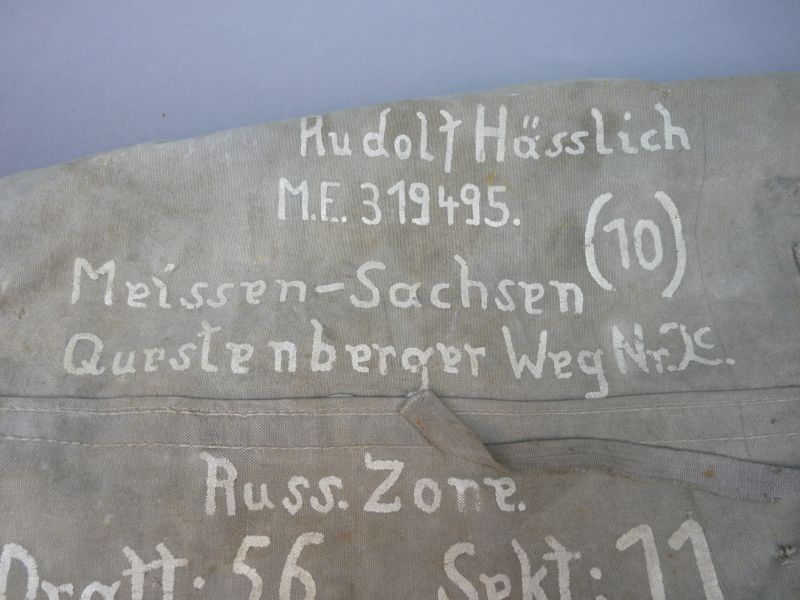 Rudolf Hässlich
M.E. 319495.
(10)
Meissen-Sachsen
Questenberger Weg Nr.
Russ. Zone.
56 Sekt: 11